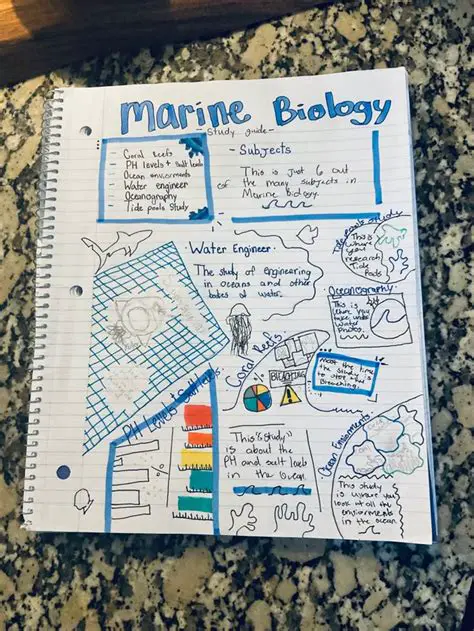 Marine Biology
- Study guide -
- Coral Reefs
- PH levels + Salt levels
- Ocean enviorments
- Water engineer
- Oceanography
- Tide pools Study
- Subjects
This is just 6 out
of the many subjects in
Marine Biology.
Tide Pools Study
This is
where
you
research
Tide
Pools
· Water Engineer ·
The study of engineering
in oceans and other
bodies of water.
Oceanography
This is
where you
take under
Water
Photos.
Coral Reefs
BLEACHING
Most the time
the study is
to stop the
Bleaching.
PH Levels + Salt levels
This "study"
is about the
PH and salt levels
in the Ocean
Ocean Enviorments
This study
is where you
look at all the
enviorments
in the ocean.